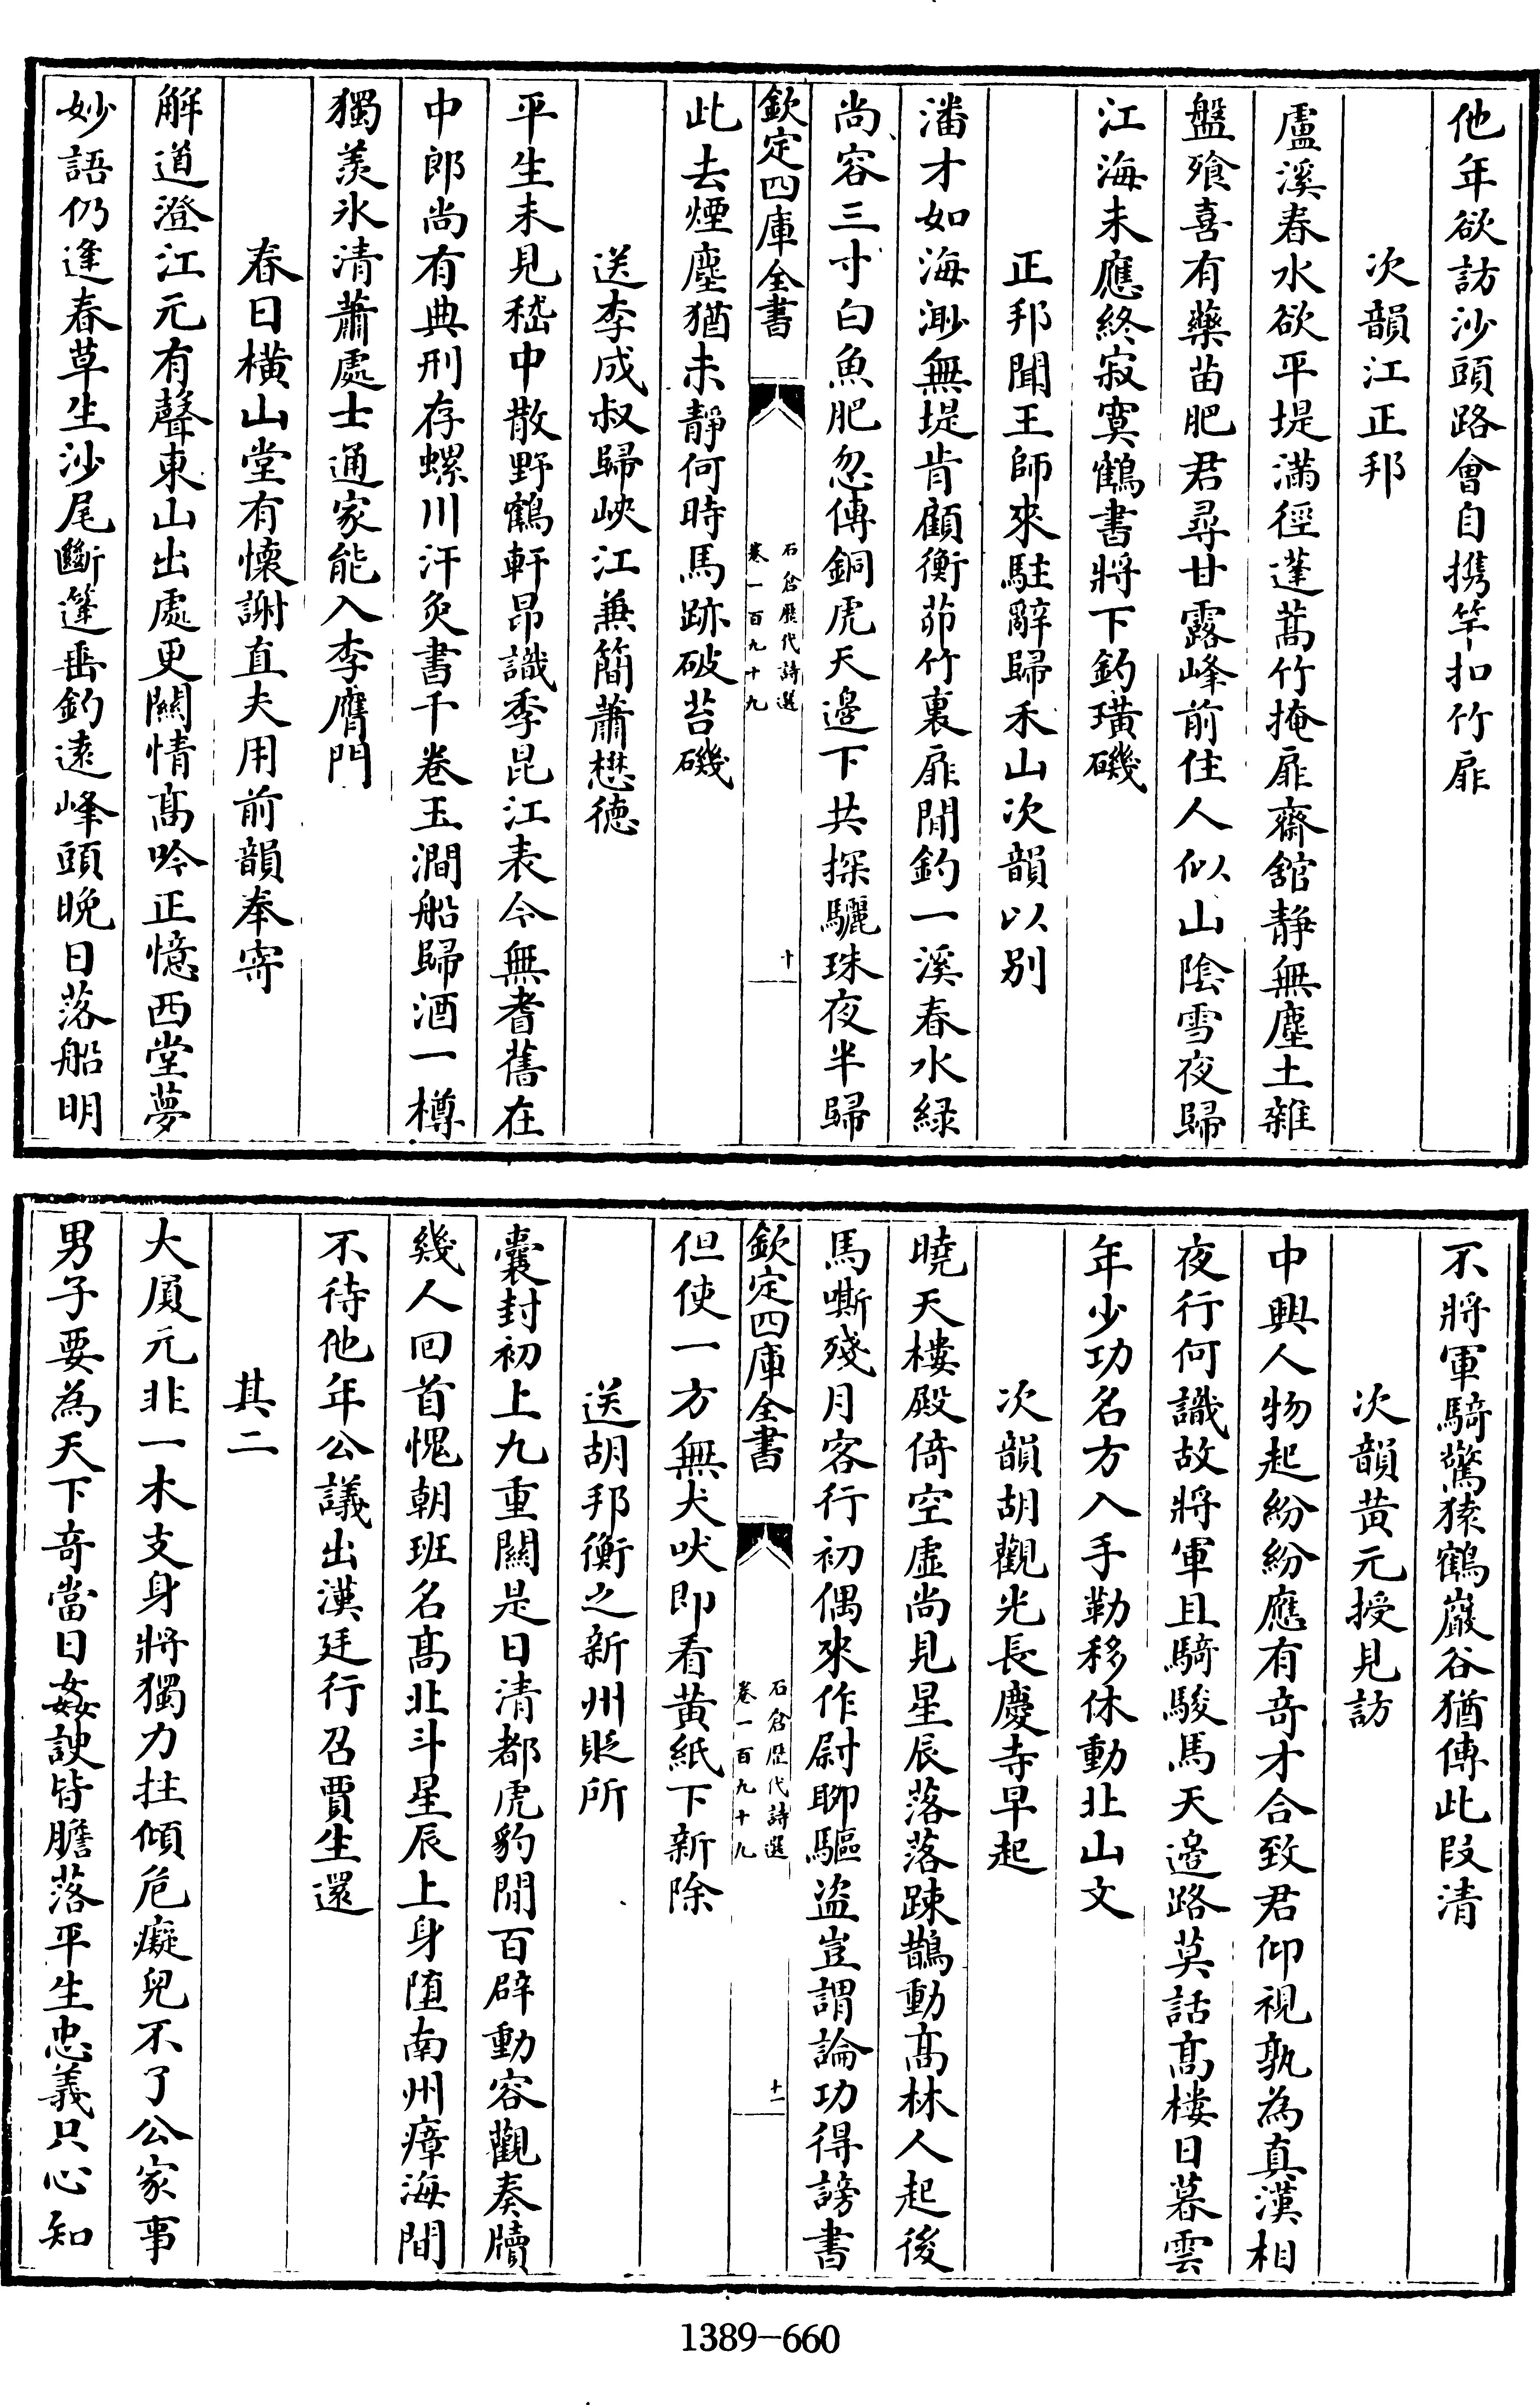 他年欲訪沙頭路會自携竿扣竹扉
次韻江正邦
盧溪春水欲平堤滿徑蓬蒿竹掩扉齋舘静無塵土雜
盤飱喜有藥苗肥君尋甘露峰前住人似山陰雪夜歸
江海未應終寂寞鶴書將下釣璜磯
正邦聞王師來駐辭歸禾山次韻以别
潘才如海渺無堤肯顧衡茆竹裏扉閒釣一溪春水緑
尚容三寸白魚肥忽傳銅虎天邉下共探驪珠夜半歸
欽定四庫全書
石倉歷代詩選
卷一百九十九
十
此去煙塵猶未靜何時馬跡破苔磯
送李成叔歸峽江兼簡蕭懋徳
平生未見嵇中散野鶴軒昂識季昆江表今無耆舊在
中郎尚有典刑存螺川汗灸書千卷玉澗船歸酒一樽
獨羨氷清蕭處士通家能入李膺門
春日横山堂有懷謝直夫用前韻奉寄
解道澄江元有聲東山出處更闗情髙吟正憶西堂夢
妙語仍逢春草生沙尾斷篷垂釣逺峰頭晚日落船明
不將軍騎驚猿鶴巖谷猶傳此段清
次韻黄元授見訪
中興人物起紛紛應有奇才合致君仰視孰為真漢相
夜行何識故將軍且騎駿馬天邉路莫話髙樓日暮雲
年少功名方入手勒移休動北山文
次韻胡觀光長慶寺早起
曉天樓殿倚空虚尚見星辰落落踈鵲動髙林人起後
馬嘶殘月客行初偶來作尉聊驅盜豈謂論功得謗書
欽定四庫全書
石倉歷代詩選
卷一百九十九
十一
但使一方無犬吠即看黄紙下新除
送胡邦衡之新州貶所
囊封初上九重闗是日清都虎豹閒百辟動容觀奏牘
幾人回首愧朝班名髙北斗星辰上身堕南州瘴海間
不待他年公議出漢廷行召賈生還
其二
大厦元非一木支身將獨力拄傾危癡兒不了公家事
男子要為天下奇當日姦諛皆膽落平生忠義只心知
1389-660